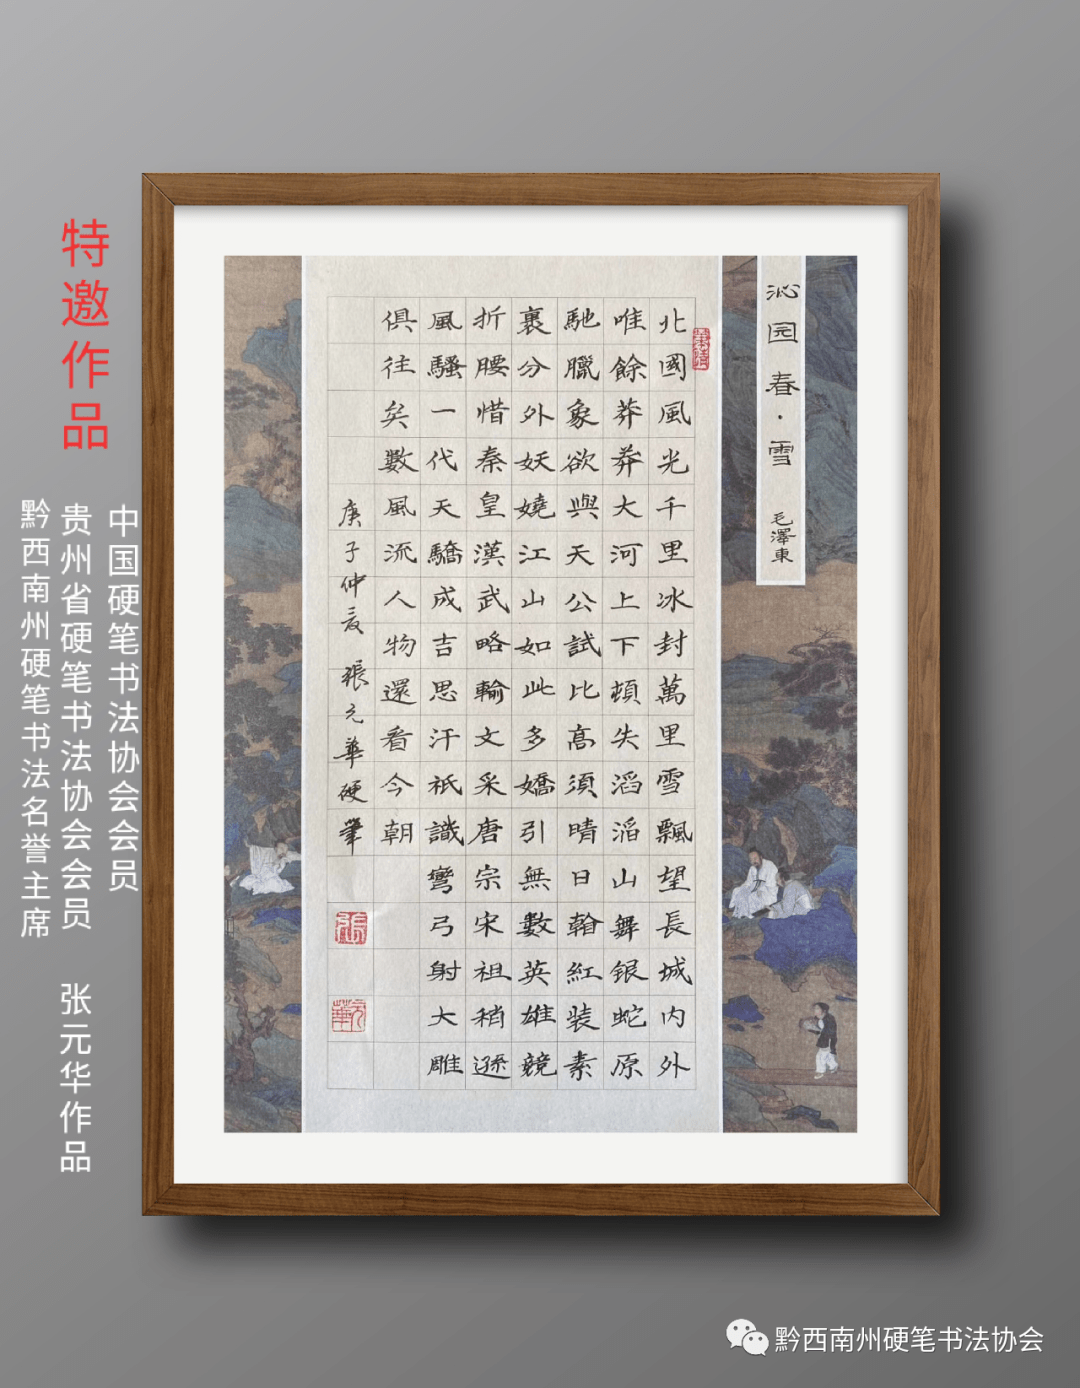 特邀作品
中国硬笔书法协会会员
贵州省硬笔书法协会会员 张元华作品
黔西南州硬笔书法名誉主席
沁园春·雪
毛澤東
北國風光千里冰封萬里雪飄望長城内外
唯餘莽莽大河上下頓失滔滔山舞银蛇原
馳臘象欲與天公試比高須晴日翰紅装素
裹分外妖嬈江山如此多嬌引無數英雄競
折腰惜秦皇漢武略輸文采唐宗宋祖稍遜
風騷一代天驕成吉思汗祇識彎弓射大雕
俱往矣數風流人物還看今朝
庚子仲夏 張元華硬筆
張
元華
黔西南州硬笔书法协会